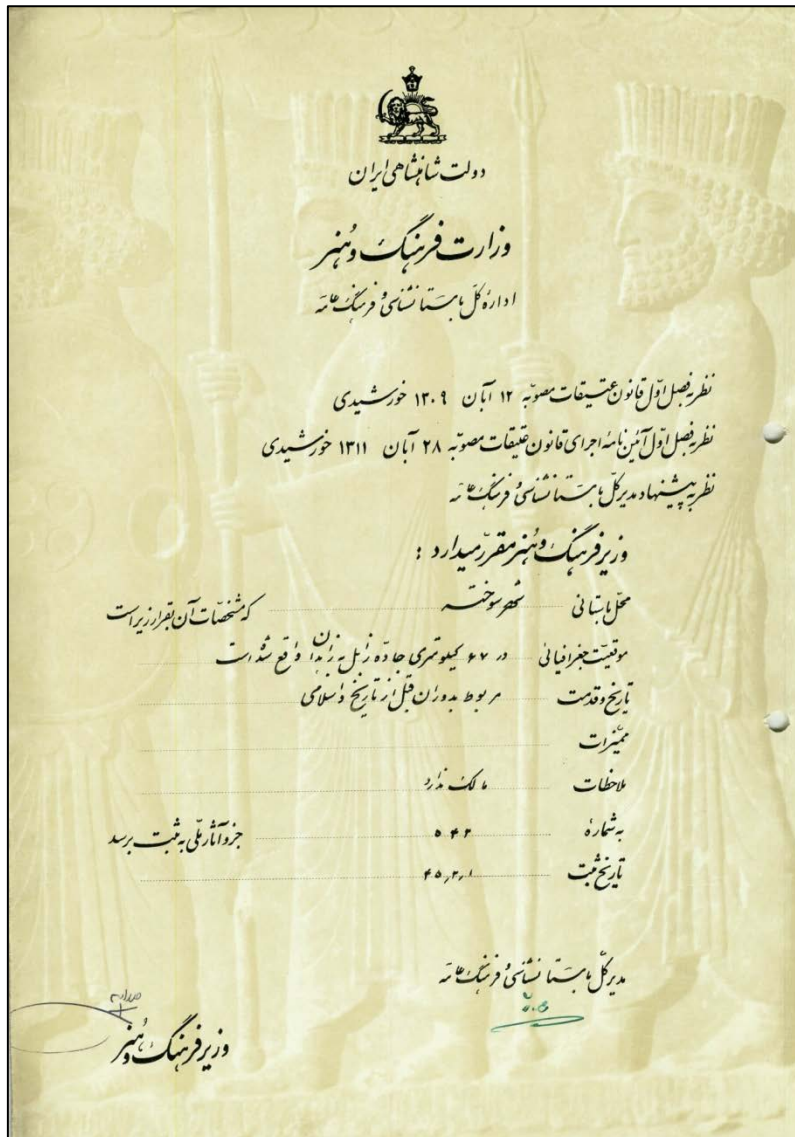 دولت شاهنشاهی ایران
وزارت فرهنگ و هنر
ادارهٔ کل باستانشناسی و فرهنگ عامه
نظر بفصل اوّل قانون عتیقات مصوبّه ۱۲ آبان ۱۳۰۹ خورشیدی
نظر بفصل اوّل آئین نامهٔ اجرای قانون عتیقات مصوبّه ۲۸ آبان ۱۳۱۱ خورشیدی
نظر به پیشنهاد مدیر کلّ باستانشناسی و فرهنگ عامه
وزیر فرهنگ و هنر مقرّر میدارد :
محلّ باستانی شهر سوخته که مشخصّات آن بقرار زیر است
موقعیّت جغرافیائی در ۶۷ کیلومتری جادّه زابل به زاهدان واقع شده است
تاریخ و قدمت مربوط بدوران قبل از تاریخ و اسلامی
ممیّزات
ملاحظات مالک ندارد
به شمارهٔ ۵۴۲ جزو آثار ملّی به ثبت برسد
تاریخ ثبت
مدیر کلّ باستانشناسی و فرهنگ عامه
وزیر فرهنگ و هنر